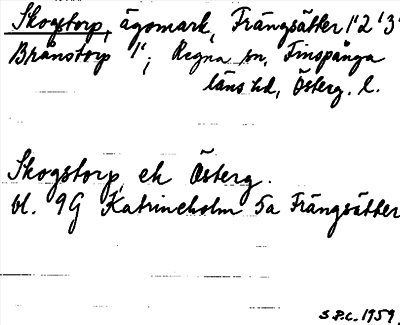 Skogstorp, ägomark, Frängsätter 1'2'3'
Brånstorp 1'; Regna sn, Finspånga
läns hd, Österg. l.
Skogstorp, ek Österg.
bl. 9G Katrineholm 5a Frängsätter
S.P.C. 1959.